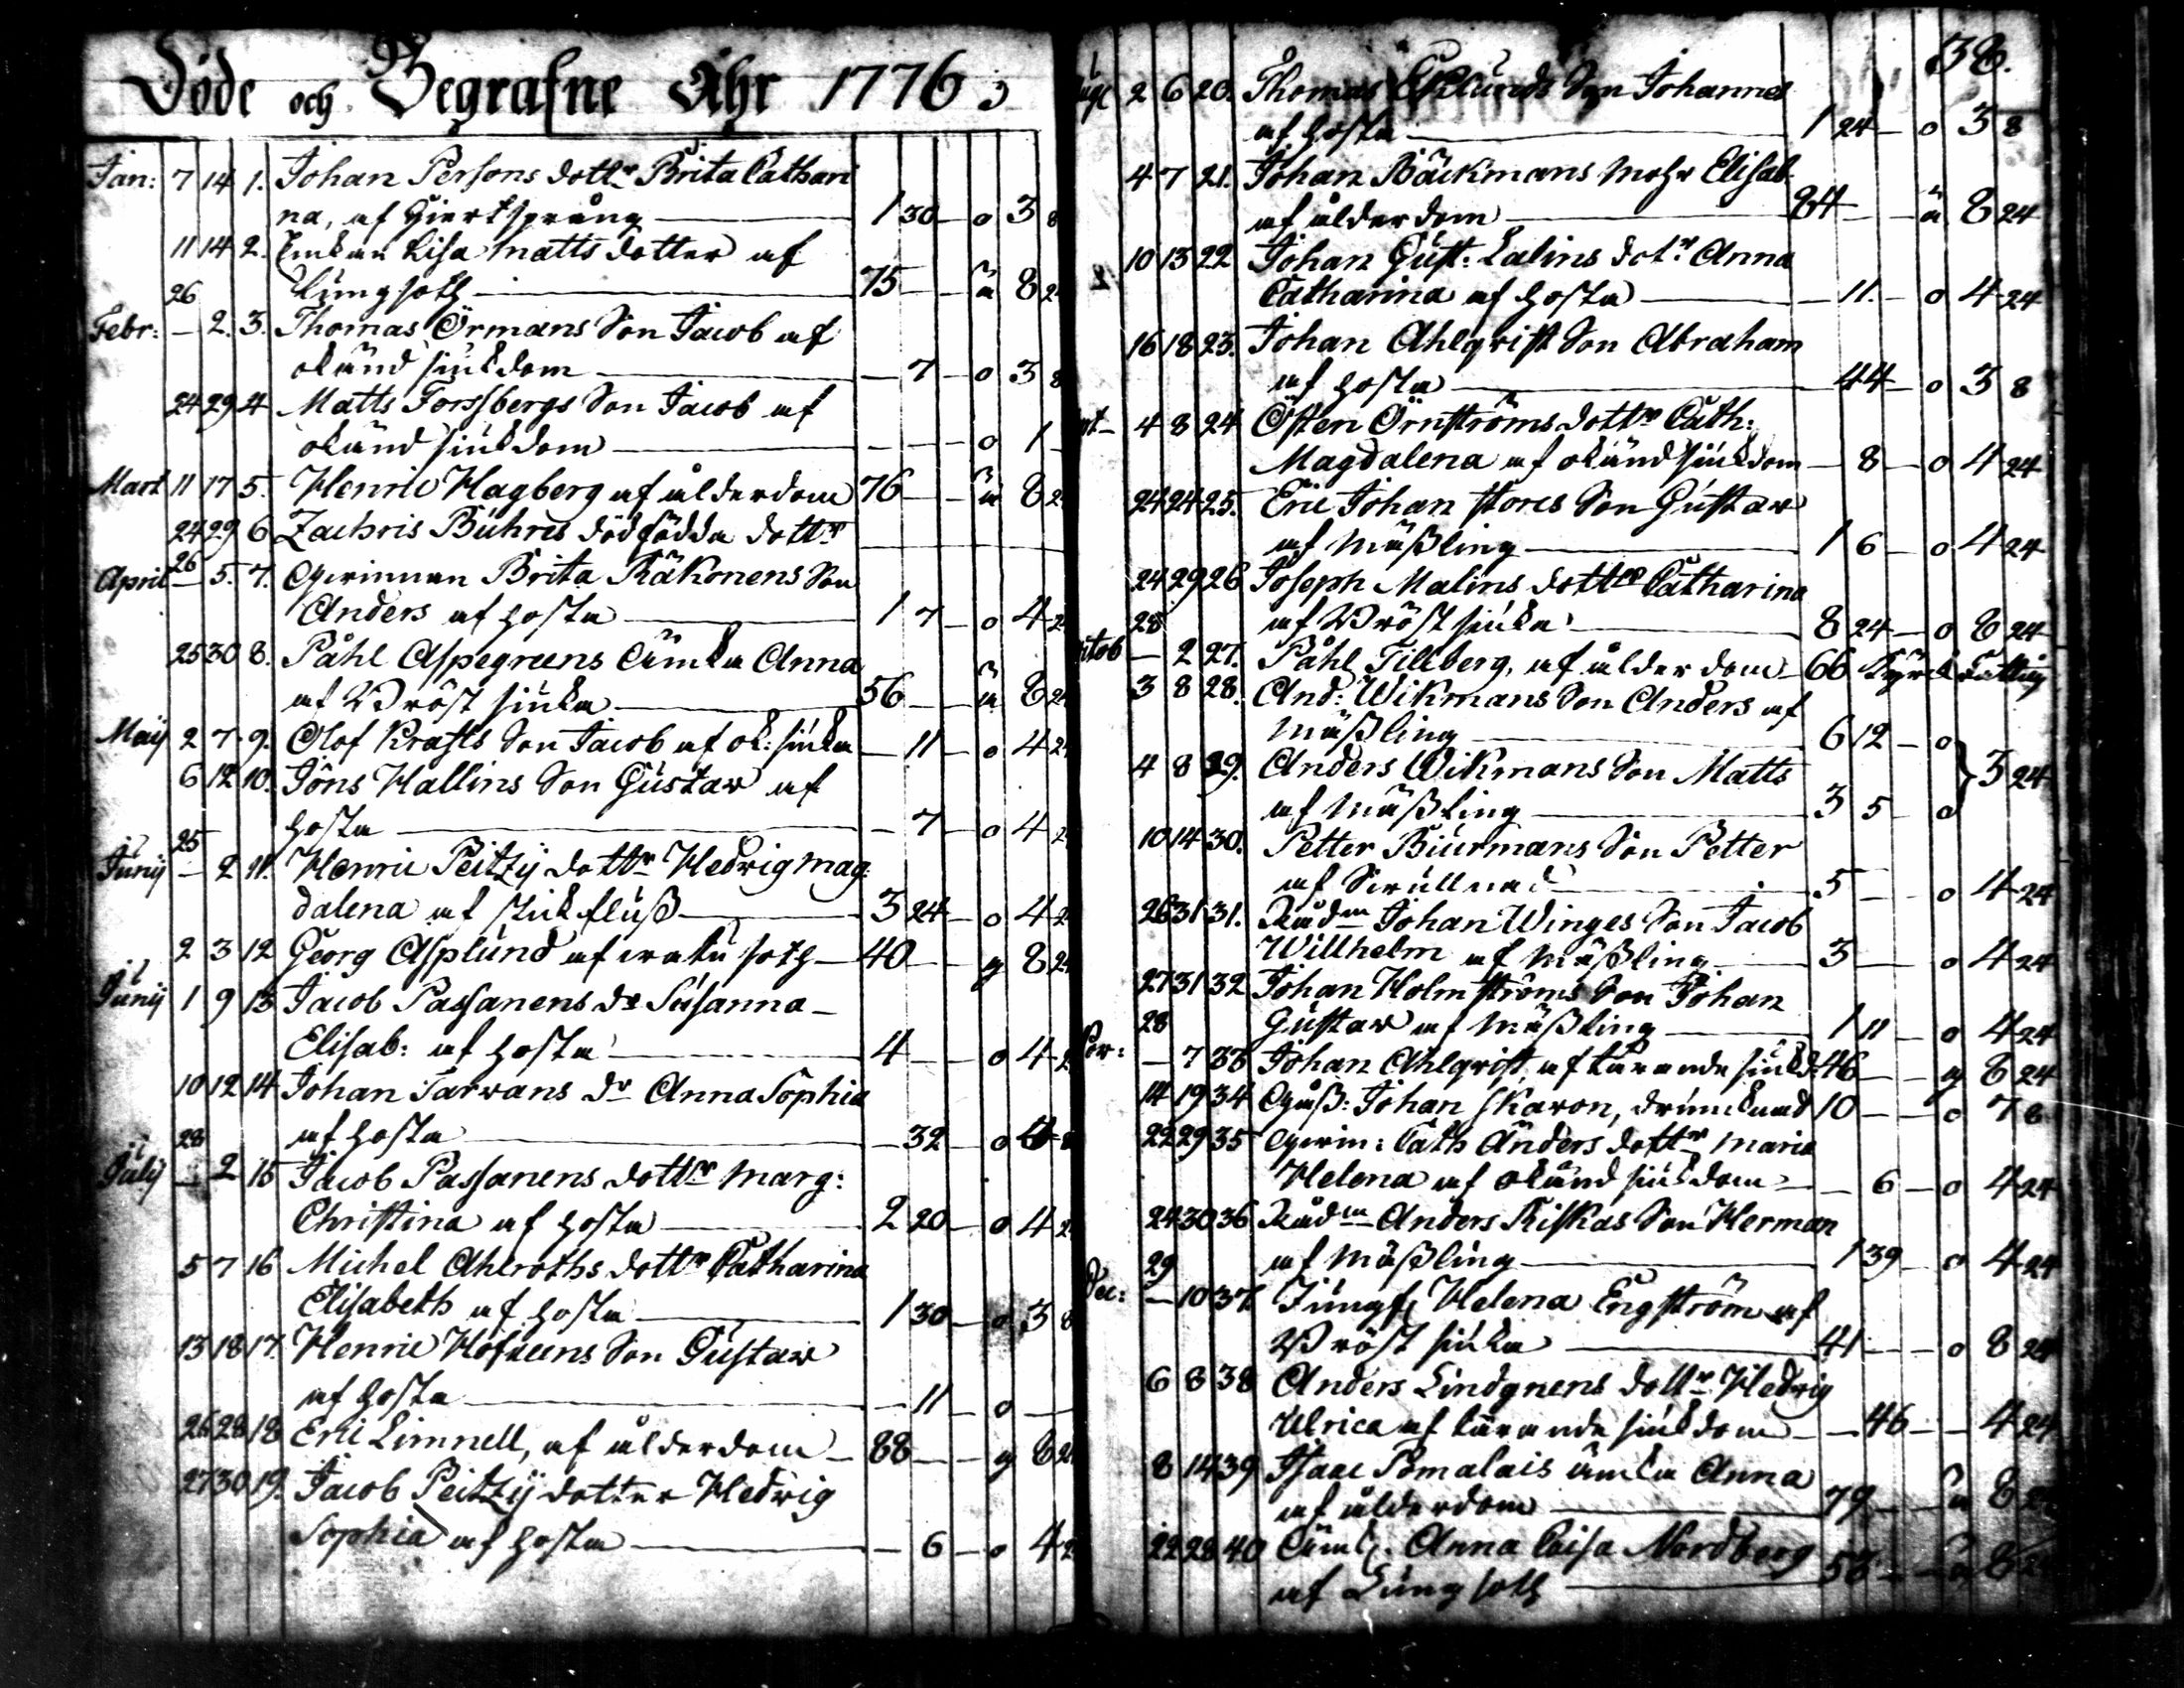 Döde och Begrafne Åhr 1776
Jan: 7 14 1. Johan Persons dottr Brita Cathari
na, af Hiertsprång 1 30 - o 3 8
11 14 2. Enkan Lisa Matts dotter af
Lungsoth 75 - ä 8 24
26
Febr: - 2. 3. Thomas Örmans Son Jacob af
okänd siukdom - 7 - o 3 8
24 29 4 Matts Forssbergs Son Jacob af
okänd siukdom - - - o 1 -
Mart 11 17 5. Henric Hagberg af ålderdom 76 - ä 8 2
24 29 6 Zachris Buhres dödfödda dottr
26
April - 5. 7. Qwinnan Brita Räkonens Son
Anders af hosta 1 7 - o 4 2
25 30 8. Påhl Aspegreens Änka Anna
af Bröst siuka 56 - ä 8 24
Maij 2 7 9. Olof Krafts Son Jacob af ok: siuka - 11 - o 4 24
6 12 10. Jöns Hallins Son Gustav af
hosta - 7 - o 4 2
25
Junij - 2 11. Henric Peitzij dottr Hedvig Mag:
dalena af stickfluß 3 24 - o 4 2
2 3 12 Georg Asplund af soth 40 - g 8 24
Junij 1 9 13 Jacob Passanens dr Susanna
Elisab: af hosta 4 - - o 4 2
10 12 14 Johan Tarvans dr Anna Sophia
af hosta - 32 - o 4 8
28
Julij - 2 15 Jacob Passanens dottr Marg:
Christina af hosta 2 20 - o 4 2
5 7 16 Michel Ahlroths dottr Catharina
Elisabeth af hosta 1 30 - o 3 8
13 18 17. Henric Hofreens Son Gustav
af hosta - 11 - o -
26 28 18 Eric Limnell, af ålderdom - 88 - - g 8 24
27 30 19. Jacob Peitzij dotter Hedvig
Sophia af hosta - 6 - o 4 2
38.
2 6 20. Thomas Eklunds Son Johannes
af hosta 1 24 - o 3 8
4 7 21. Johan Bäckmans Mohr Elisab
af ålderdom 84 - - ä 8 24
10 13 22 Johan Gust: Lalins dotr Anna
Catharina af hosta - 11. - o 4 24
16 18 23. Johan Ahlqvist Son Abraham
af hosta 44 - o 3 8
4 8 24 Östen Örnströms dottr Cath:
Magdalena af okänd siukdom - 8 - o 4 24
24 24 25. Eric Johan stores Son Gustav
af Mäßling 1 6 - o 4 24
24 29 26 Joseph Malins dottr Catharina
28 af Bröst siuka 8 24 - o 8 24
- 2 27. Påhl Tillberg, af ålderdom 66 Kyrk fattig
3 8 28. And: Wikmans Son Anders af
Mäßling 6 12 - o
4 8 29. Anders Wikmans Son Matts
af Mäßling 3 5 - o } 3 24
10 14 30. Petter Biurmans Son Petter
af 5 - - o 4 24
26 31 31. Rådm Johan Winges Son Jacob
Willhelm af Mäßling 3 - - o 4 24
27 31 32 Johan Holmströms Son Johan
28 Gustav af Mäßling 1 11 - o 4 24
- 7 33 Johan Ahlqvist, af tärande siukd: 46 - - g 8 24
14 19 34 Johan Skaron, drunknad 10 - - o 7 8
22 29 35 Qwin: Cath Anders dottr Maria
Helena af okänd siukdom - 6 - o 4 24
24 30 36 Rådm Anders Riskas Son Herman
29 af Mäßling 1 39 - o 4 24
Dec: - 10 37. Jungf. Helena Engström af
Bröst siuka 41 - - o 8 24
6 8 38 Anders Lindgrens dottr Hedvig
Ulrica af tärande siukdom - 46 - - 4 24
8 14 39 Isaac Pomalais änka Anna
af ålderdom 79 - - ä 8 24
22 28 40 Anna Caisa Nordberg
af Lungsoth 58 - - ä 8 24